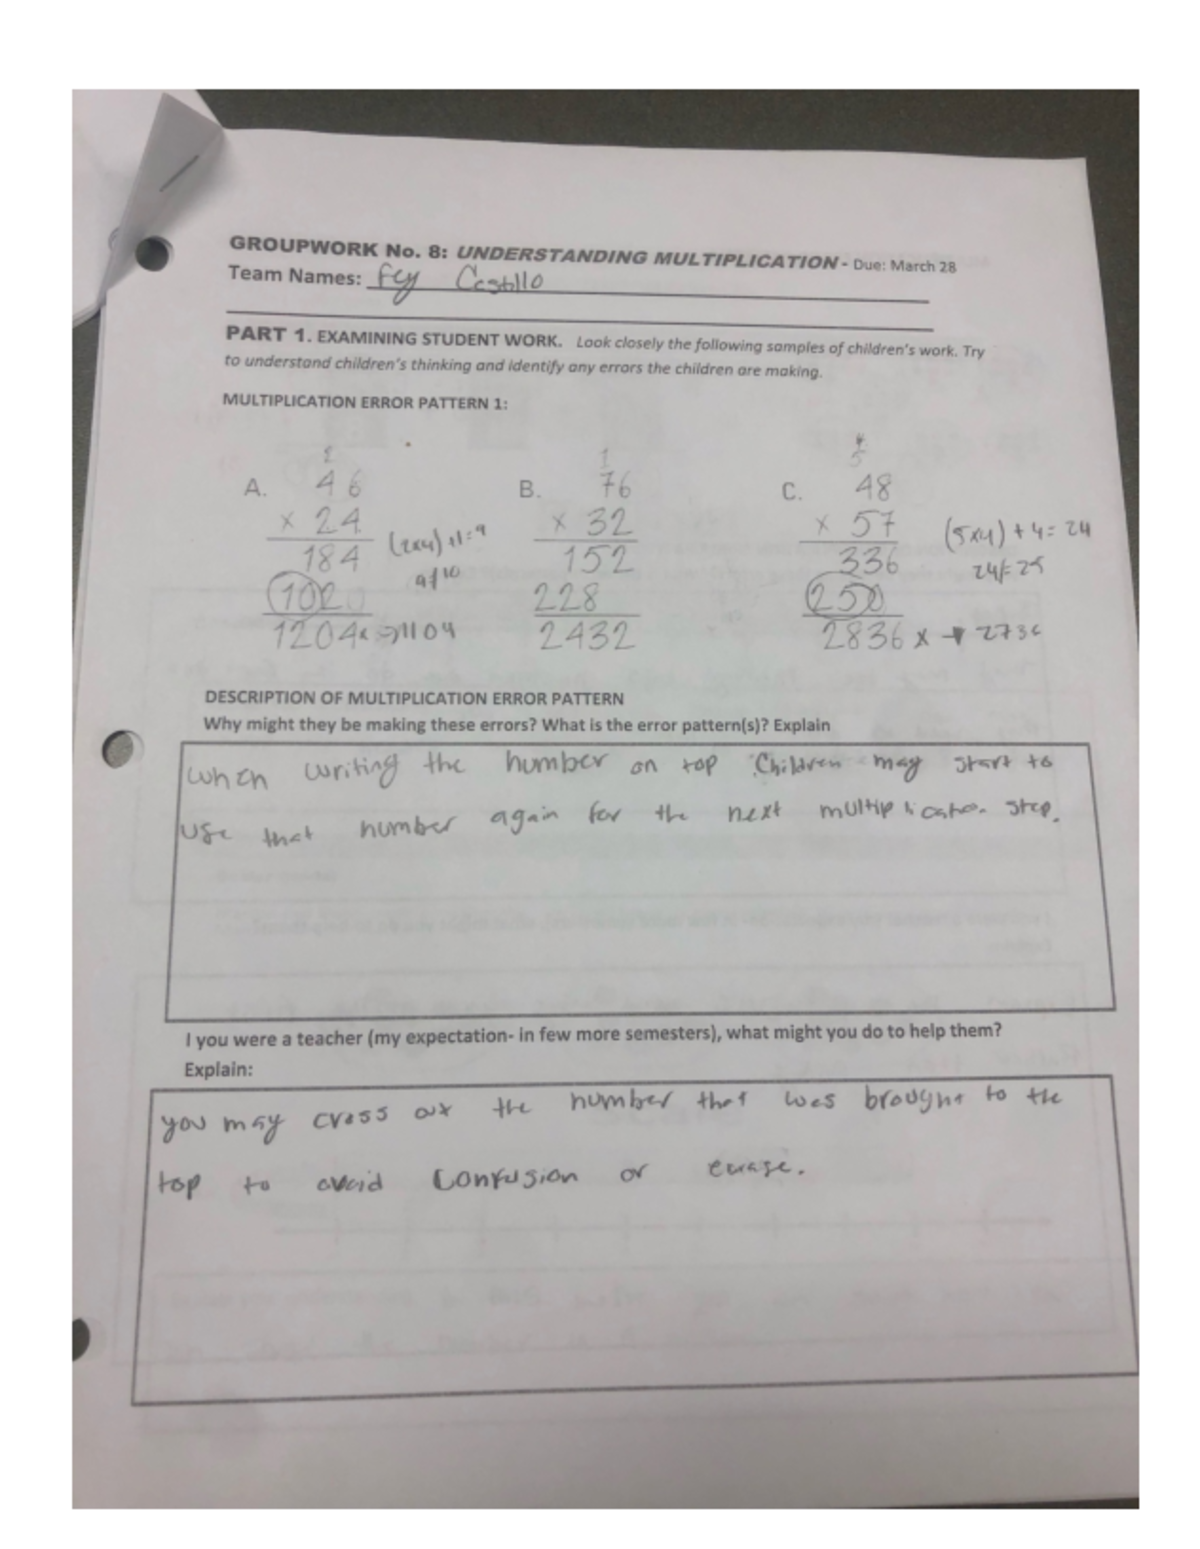 GROUPWORK No. 8: UNDERSTANDING MULTIPLICATION - Due: March 28
Team Names: Fey Castillo
PART 1. EXAMINING STUDENT WORK. Look closely the following samples of children's work. Try
to understand children's thinking and identify any errors the children are making.
MULTIPLICATION ERROR PATTERN 1:
A. 46
x 24
184 (2x4)+1=9
1020 9≠10
1204x ⇒1104
B. 1
76
x 32
152
228
2432
C. 4
5
48
x 57 (5x4)+4=24
336 24≠25
250
2836 x → 2736
DESCRIPTION OF MULTIPLICATION ERROR PATTERN
Why might they be making these errors? What is the error pattern(s)? Explain
When writing the number on top Children may start to
use that number again for the next multiplication step.
I you were a teacher (my expectation- in few more semesters), what might you do to help them?
Explain:
you may cross out the number that was brought to the
top to avoid confusion or erase.